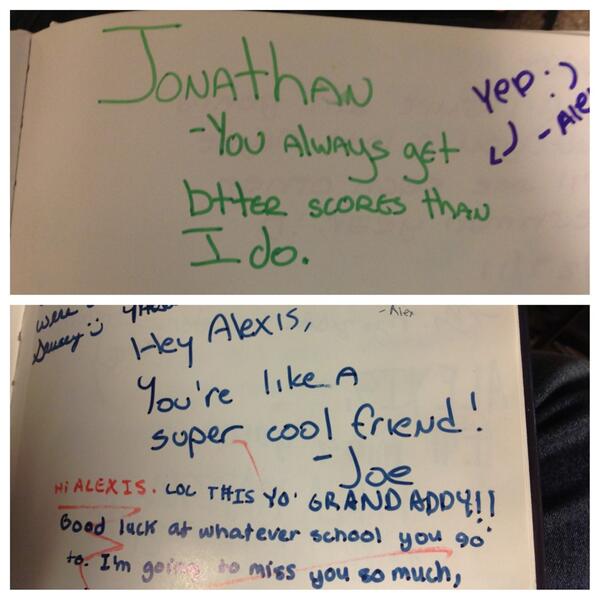 JONATHAN
-YOU ALWAYS gET
btter SCORES thAN
I do.
yep :)
were
Hey Alexis,
You're like A
super cool friend!
- Joe
Hi ALEXIS. LOL THIS YO' GRANDADDY!!
Good luck at whatever school you go
to. I'm going to miss you so much,
- Alex